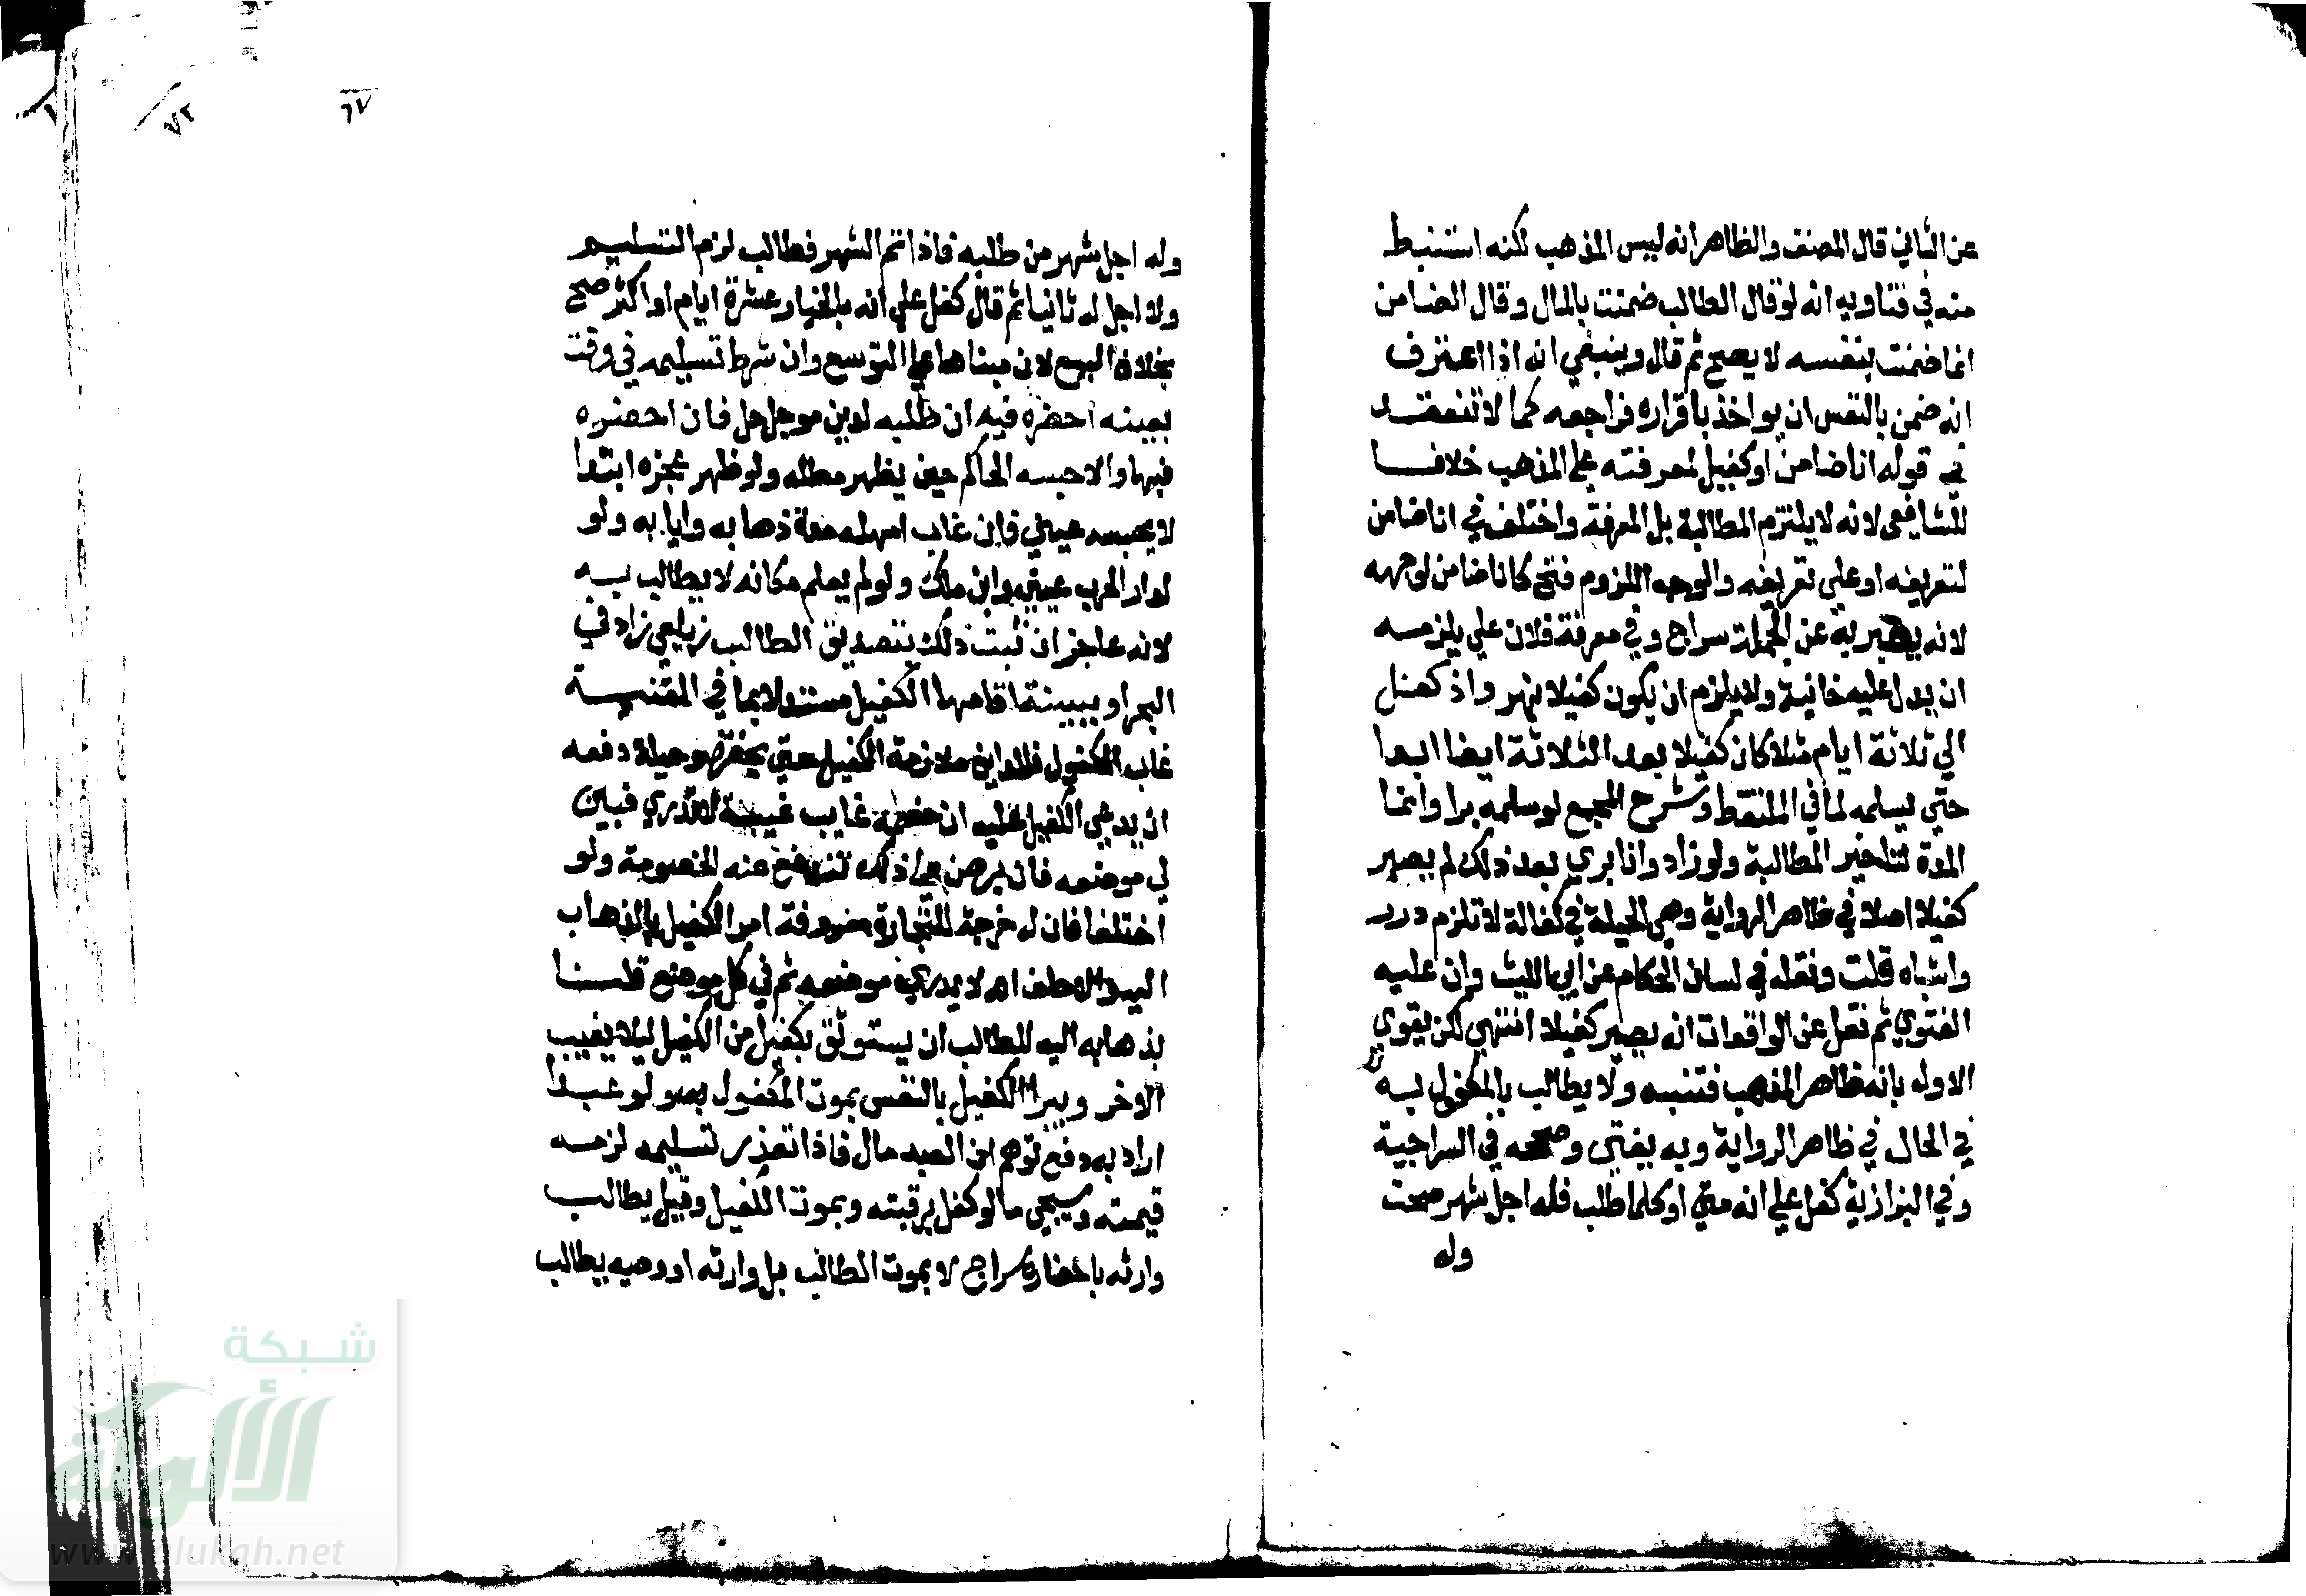 عن الثاني قال المصنف والظاهر انه ليس المذهب لكنه استنبط
منه في فتاويه انه لو قال الطالب ضمنت بالمال وقال الضامن
انما ضمنت بنفسه لا يصح ثم قال وينبغي انه اذا اعترف
انه ضمن بالنفس ان يواخذ باقراره فراجعه كما لا تنعقد
في قوله انا ضامن او كفيل لمعرفته علي المذهب خلافا
للثاني لانه لا يلتزم المطالبة بل المعرفة واختلف في انا ضامن
لتعريفه او علي تعريفه والوجه اللزوم فتح كانا ضامن لوجهه
لانه يعبر به عن الجملة سراج وفي معرفة فلان علي يلزمه
ان يدل عليه خانية ولا يلزم ان يكون كفيلا نهر واذ كفل
الي ثلاثة ايام مثلا كان كفيلا بعد الثلاثة ايضا ابدا
حتي يسلمه لما في الملتقط وشرح المجمع لو سلمه برا وانما
المدة لتاخير المطالبة ولو زاد وانا بري بعد ذلك لم يصير
كفيلا اصلا في ظاهر الرواية وهي الحيلة في كفالة لا تلزم درر
واشباه قلت ونقله في لسان الحكام عن ابي الليث وان عليه
الفتوي ثم نقل عن الواقعات انه يصير كفيلا انتهي لكن يقوي
الاول بانه ظاهر المذهب فتنبه ولا يطالب بالمكفول به
في الحال في ظاهر الرواية وبه يفتي وصححه في السراجية
وفي البزازية كفل علي انه متي او كلما طلب فله اجل شهر صحت
وله
٦٧
٧٢
وله اجل شهر من طلبه فاذا تم الشهر فطالب لزم التسليم
ولا اجل له ثانيا ثم قال كفل علي انه بالخيار عشرة ايام او اكثر صح
بخلاف البيع لان مبناها علي التوسع وان شرط تسليمه في وقت
بعينه احضره فيه ان طلبه لدين موجل حل فان احضره
فبها والا حبسه الحاكم حين يظهر مطله ولو ظهر عجزه ابتدا
لا يحبسه عيني فان غاب امهله مدة ذهابه وايابه ولو
لدار الحرب عيني وابن ملك ولو لم يعلم مكانه لا يطالب به
لانه عاجز ان ثبت ذلك بتصديق الطالب زيلعي زاد في
البحر او ببينة اقامها الكفيل مستدلا بما في القنية
غاب المكفول فللداين ملازمة الكفيل حتي يحضره وحيلة دفعه
ان يدعي الكفيل عليه ان خصمه غايب غيبة لا تدري فبين
لي موضعه فان برهن علي ذلك تندفع عنه الخصومة ولو
اختلفا فان له خرجة للتجارة معروفة امر الكفيل بالذهاب
اليه والا حلف انه لا يدري موضعه ثم في كل موضع قلنا
بذهابه اليه للطالب ان يستوثق بكفيل من الكفيل ليلا يغيب
الاخر ويبرا الكفيل بالنفس بموت المكفول به ولو عبدا
اراد به دفع توهم ان العبد مال فاذا تعذر تسليمه لزمه
قيمته وسيجي ما لو كفل برقبته وبموت الكفيل وقيل يطالب
وارثه باحضاره سراج لا بموت الطالب بل وارثه او وصيه يطالب
شبكة
الألوكة
www.alukah.net